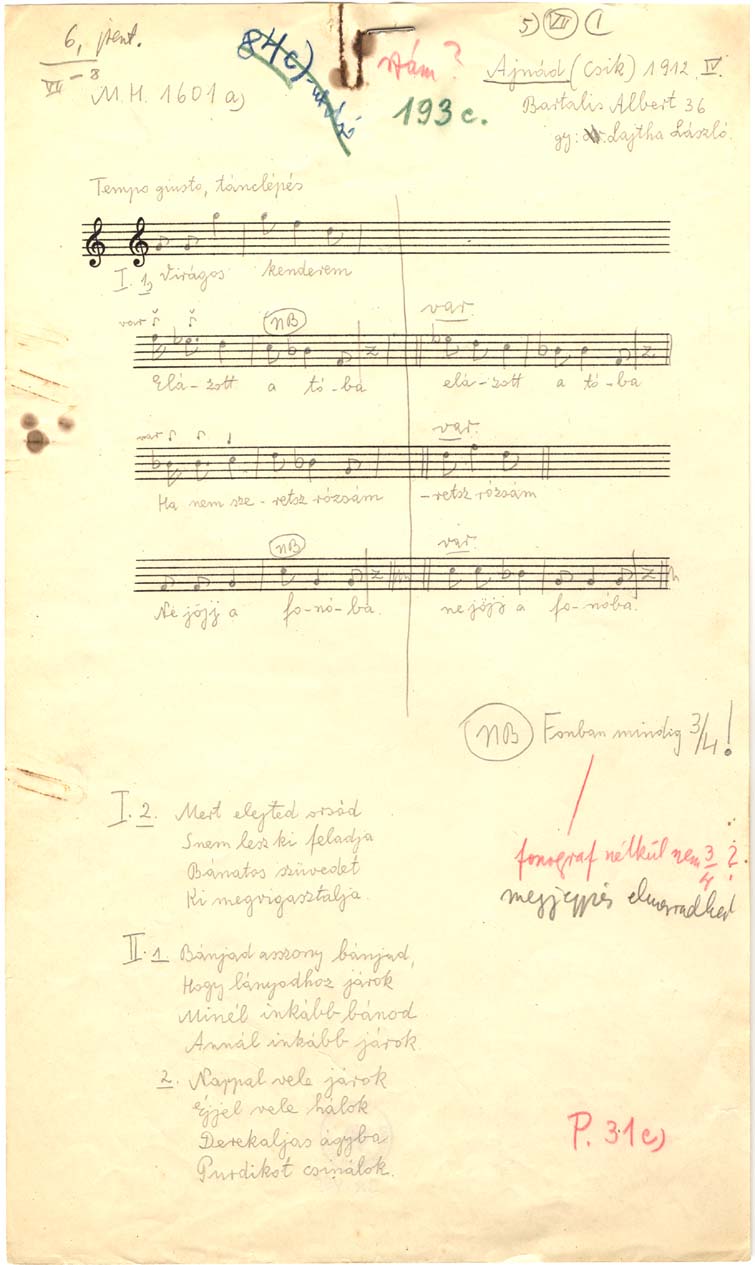 6, pent.
VII - 8
M.H. 1601 a)
84c)
szám?
193 c.
5) VII I
Ajnád (Csik) 1912. IV.
Bartalis Albert 36
gy: Lajtha László.
Tempo giusto, tánclépés
I. 1, Virágos kenderem
var
NB
var.
Elá-zott a tó-ba elá-zott a tó-ba
var
var.
Ha nem sze-retsz rózsám -retsz rózsám
NB
var.
Ne jöjj a fo-nó-ba. ne jöjj a fonóba.
NB Fonban mindig 3/4!
fonograf nélkül nem 3/4?
megjegyzés elmaradhat
I. 2. Mert elejted orsód
S nem lesz ki feladja
Bánatos szüvedet
Ki megvigasztalja.
II. 1. Bánjad asszony bánjad,
Hogy lányodhoz járok
Minél inkább bánod
Annál inkább járok.
2. Nappal vele járok
Éjjel vele hálok
Derekaljas ágyba
Purdikót csinálok.
P. 31c)